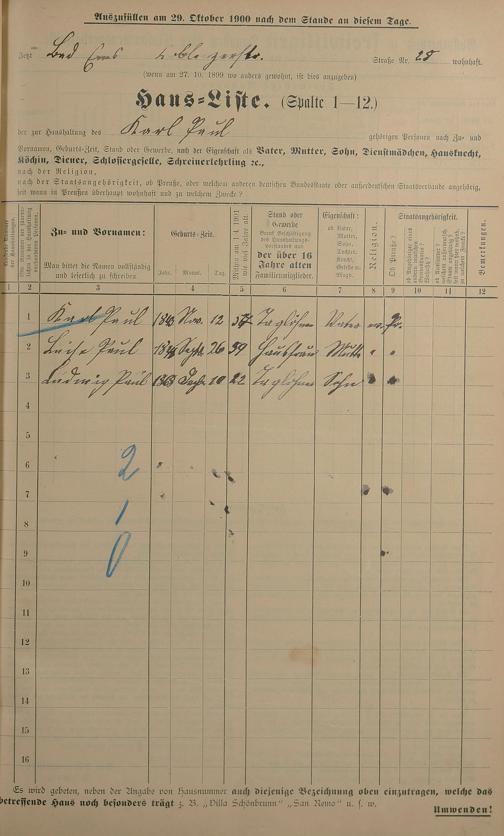 Auszufüllen am 29. Oktober 1900 nach dem Stande an diesem Tage.
Jetzt Bad Ems Coblenzerstr. Straße Nr. 25 wohnhaft.
(wenn am 27. 10. 1899 wo anders gewohnt, ist dies anzugeben)
Haus-Liste. (Spalte 1—12.)
der zur Haushaltung des Karl Paul gehörigen Personen nach Zu- und
Vornamen, Geburts-Zeit, Stand oder Gewerbe, nach der Eigenschaft als Vater, Mutter, Sohn, Dienstmädchen, Hausknecht,
Köchin, Diener, Schlossergeselle, Schreinerlehrling ꝛc.,
nach der Religion,
nach der Staatsangehörigkeit, ob Preuße, oder welchem anderen deutschen Bundesstaate oder außerdeutschen Staatsverbande angehörig,
seit wann in Preußen überhaupt wohnhaft und zu welchem Zwecke?
Zu- und Vornamen:
Man bittet die Namen vollständig
und leserlich zu schreiben
Geburts-Zeit.
Jahr. Monat. Tag.
Mithin am 1. 4. 1901
wie viel Jahre alt.
Stand oder
Gewerbe
der über 16
Jahre alten
Familienmitglieder.
Eigenschaft:
ob Vater,
Mutter,
Sohn,
Tochter,
Knecht,
Geselle
Magd.
Religion.
Staatsangehörigkeit.
Ob Preuße?
Bemerkungen.
1 2 3 4 5 6 7 8 9 10 11 12
1 Karl Paul 1843 Nov. 12 57 Taglöhner Vater ev. Pr.
2 Luise Paul Sept. 26 59 Hausfrau Mutter " "
3 Ludwig Paul 10 22 Taglöhner Sohn " "
4
5
6 2
7
8 1
9 0
10
11
12
13
14
15
16
Es wird gebeten, neben der Angabe von Hausnummer auch diejenige Bezeichnung oben einzutragen, welche das
betreffende Haus noch besonders trägt z. B. „Villa Schönbrunn" „San Remo" u. s. w.
Umwenden!